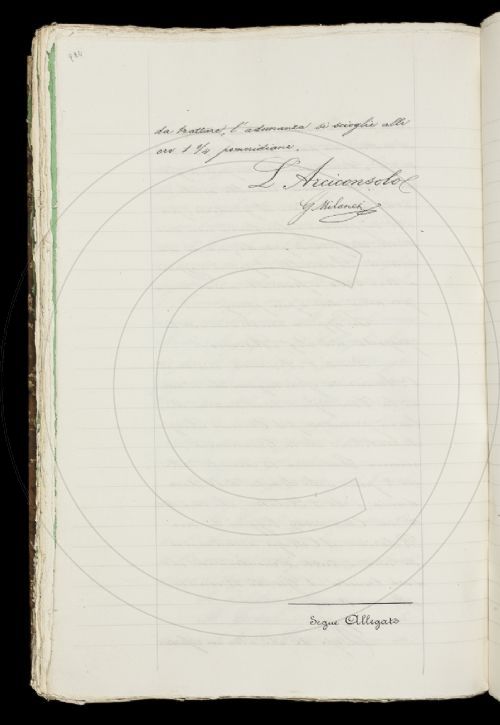 da trattare, l'adunanza si scioglie alle
ore 1 1/4 pomeridiane.
L'Arciconsolo
G. Milanesi
Segue Allegato